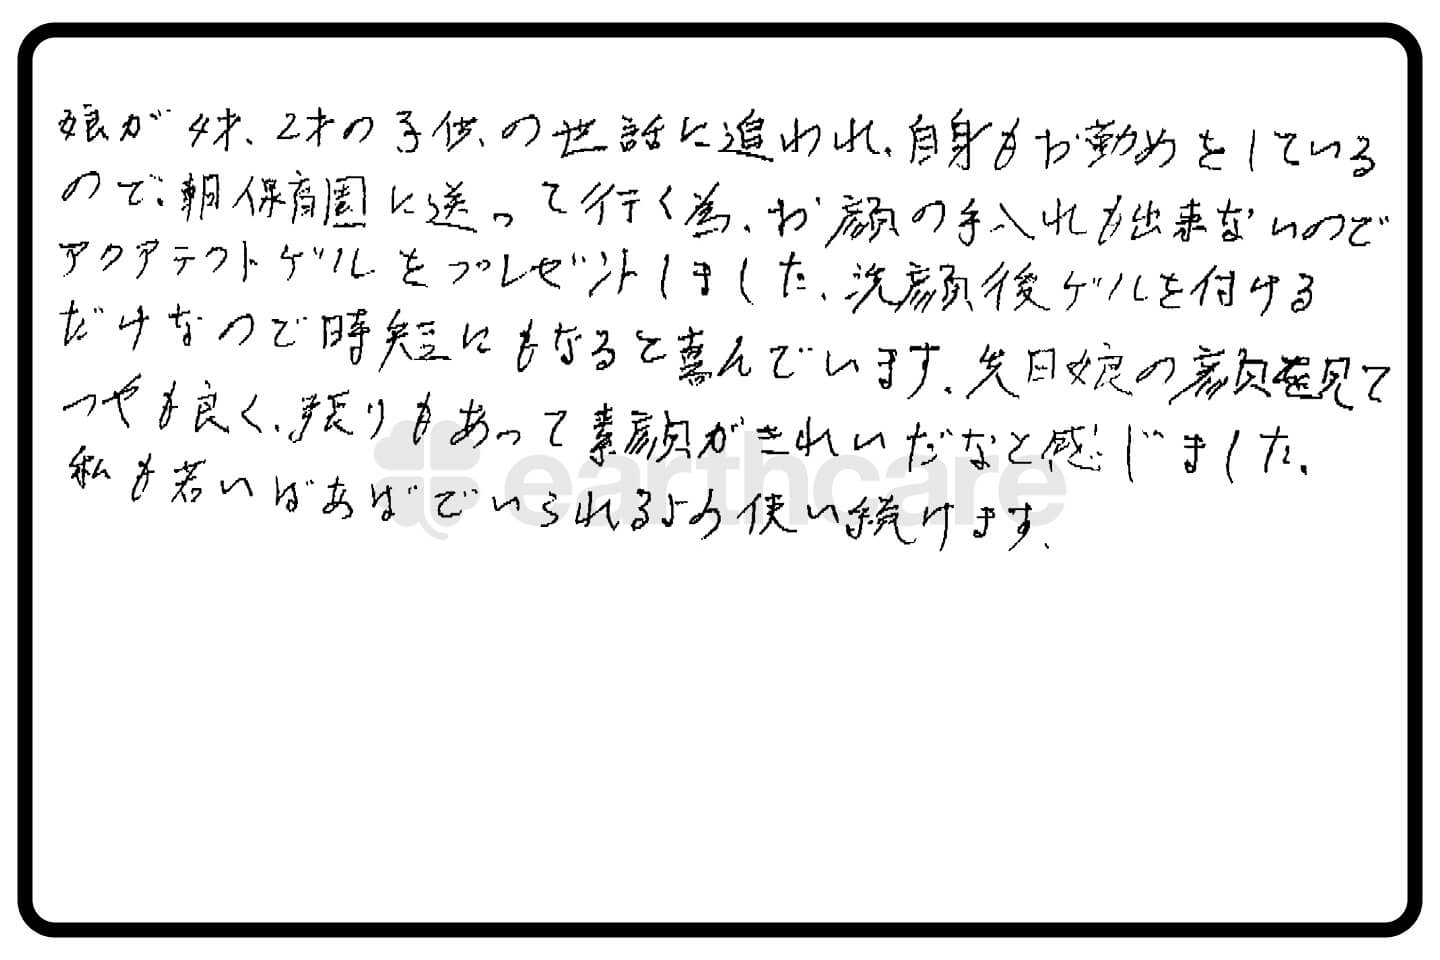 娘が4才、2才の子供、の世話に追われ、自身もお勤めをしている
ので、朝保育園に送って行く為、お顔の手入れも出来ないので
アクアテクトゲルをプレゼントしました、洗顔後ゲルを付ける
だけなので時短にもなると喜んでいます、先日娘の顔を見て
つやも良く、張りもあって素顔がきれいだなと感じました、
私も若いばあばでいられるよう使い続けます、
earthcare